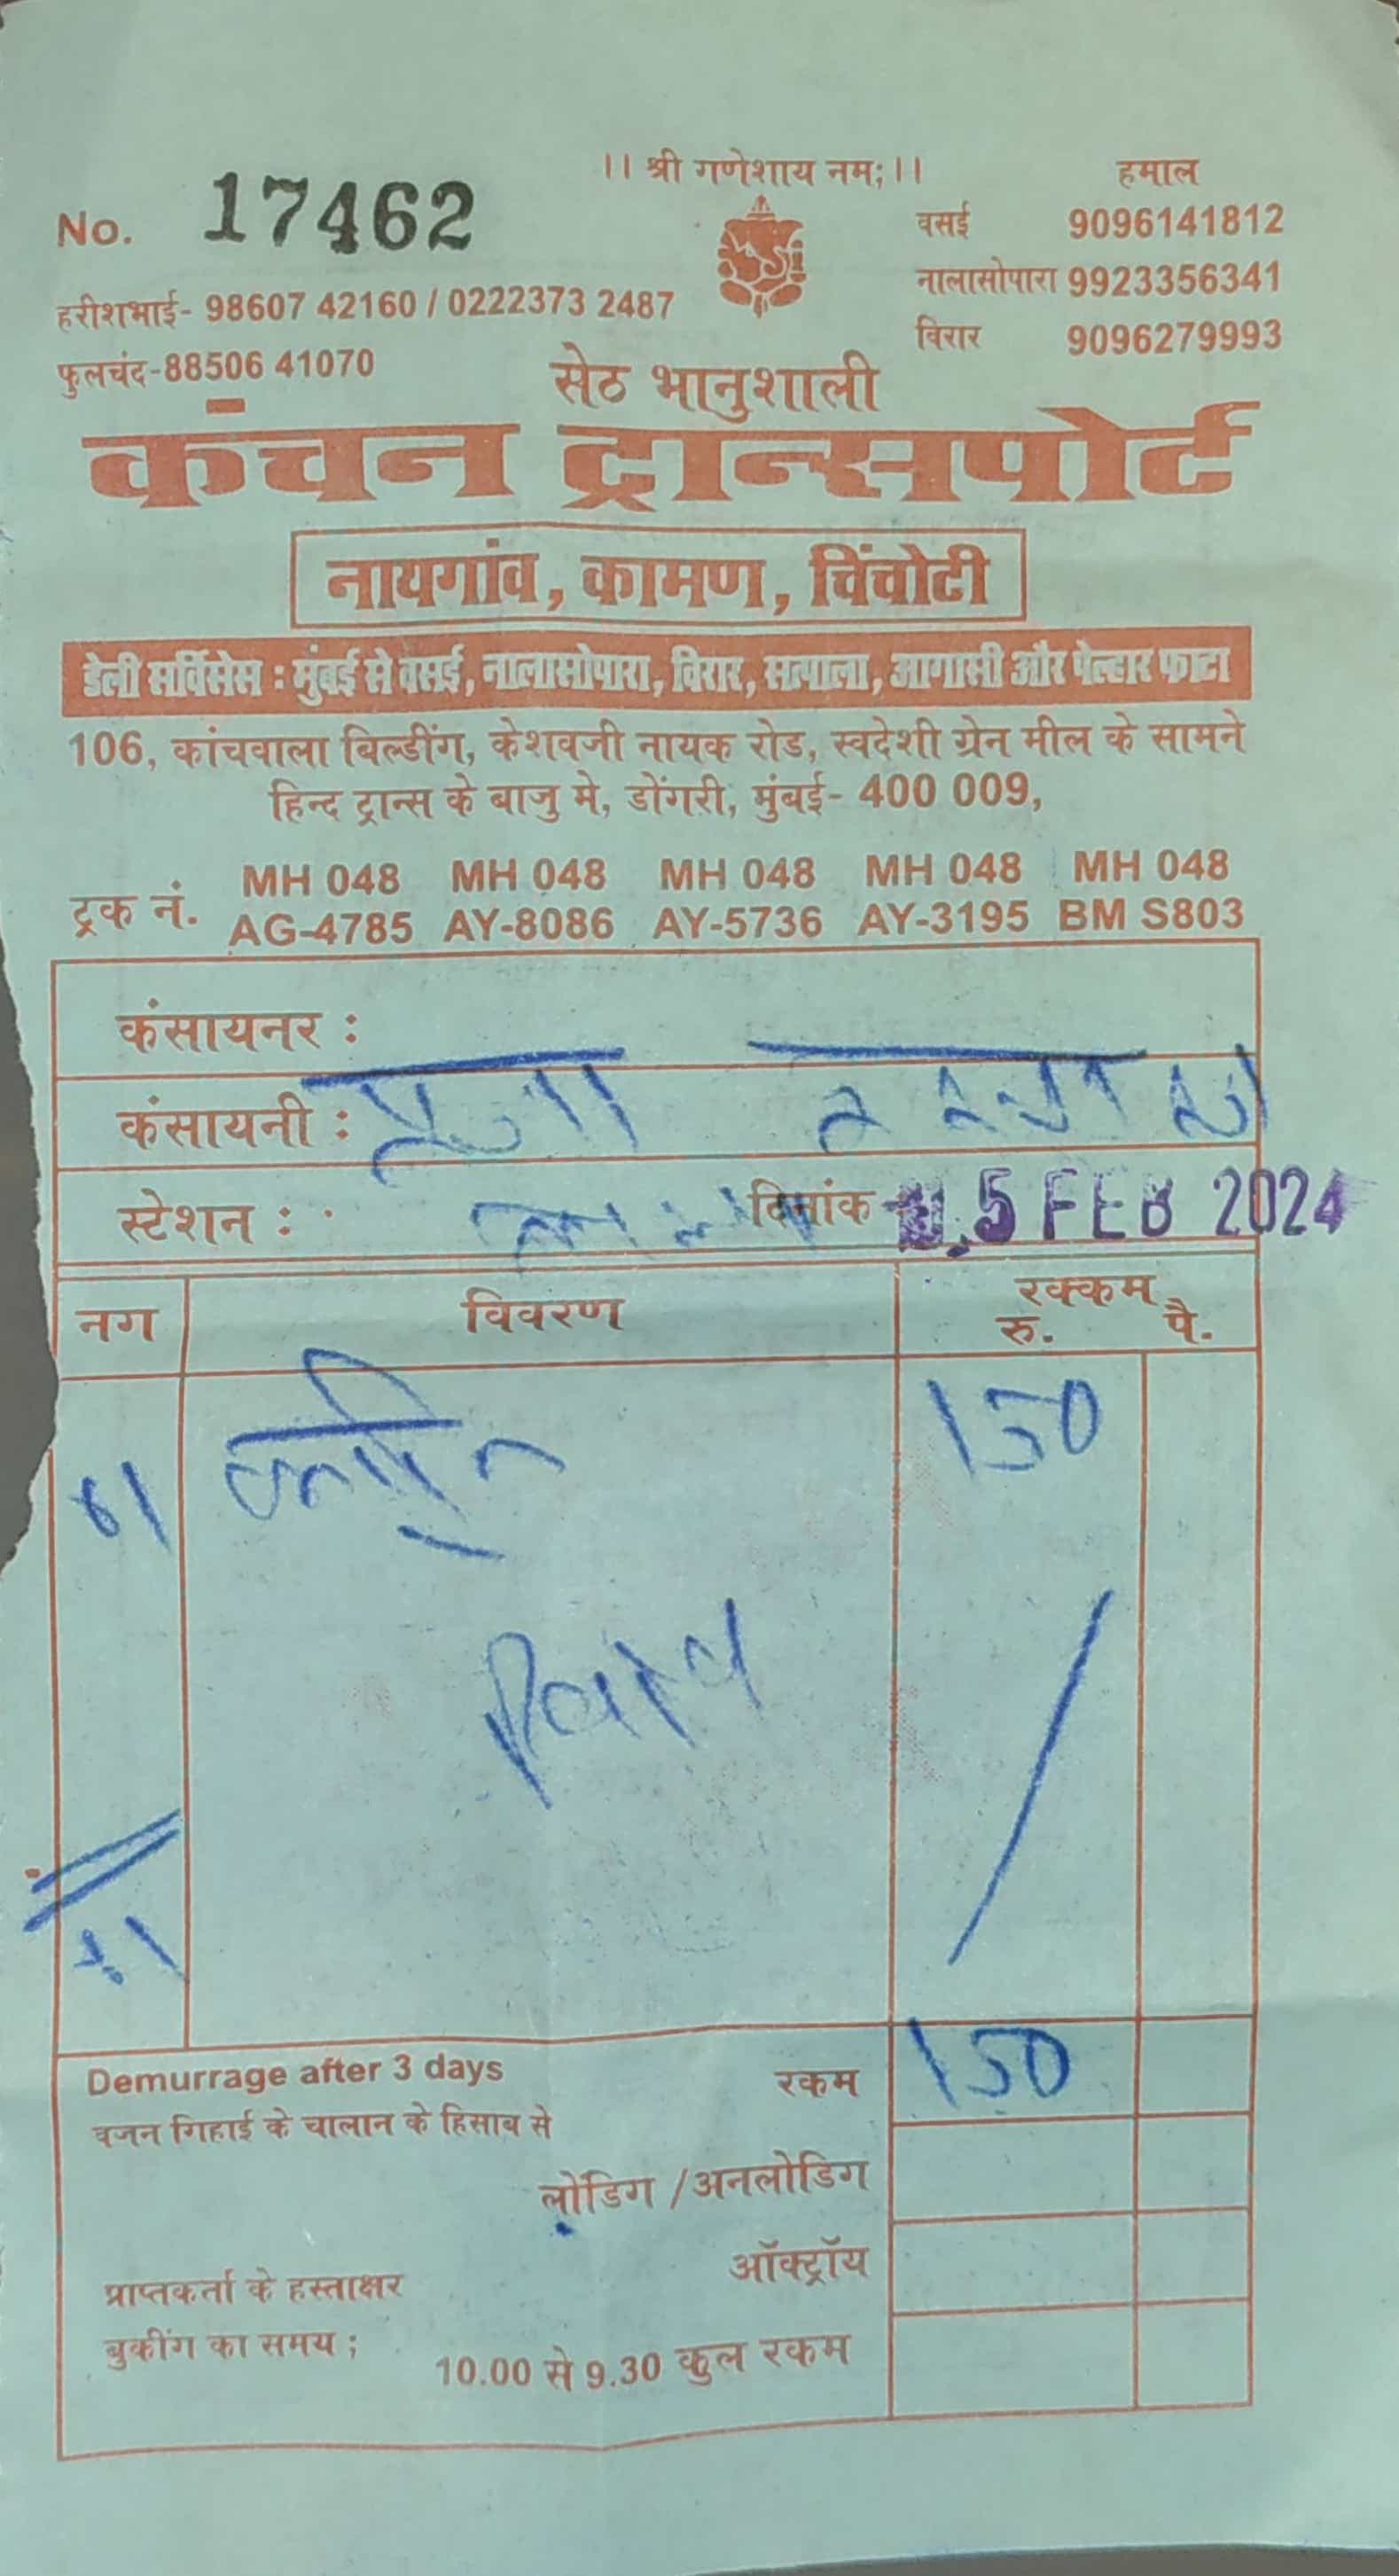 ।। श्री गणेशाय नम; ।।
हमाल
No. 17462
वसई 9096141812
नालासोपारा 9923356341
हरीशभाई- 98607 42160 / 0222373 2487
विरार 9096279993
फुलचंद-88506 41070
सेठ भानुशाली
कंचन ट्रान्सपोर्ट
नायगांव, कामण, चिंचोटी
डेली सर्विसेस : मुंबई से वसई, नालासोपारा, विरार, सत्पाला, आगासी और पेल्हार फाटा
106, कांचवाला बिल्डींग, केशवजी नायक रोड, स्वदेशी ग्रेन मील के सामने
हिन्द ट्रान्स के बाजु मे, डोंगरी, मुंबई- 400 009,
MH 048 MH 048 MH 048 MH 048 MH 048
ट्रक नं. AG-4785 AY-8086 AY-5736 AY-3195 BM S803
कंसायनर :
कंसायनी : पूजा
स्टेशन : दिनांक 5 FEB 2024
नग विवरण रक्कम
रु. पै.
150
Demurrage after 3 days रकम 150
वजन गिहाई के चालान के हिसाब से
लोडिग / अनलोडिग
ऑक्ट्रॉय
प्राप्तकर्ता के हस्ताक्षर
बुकींग का समय ; 10.00 से 9.30 कुल रकम